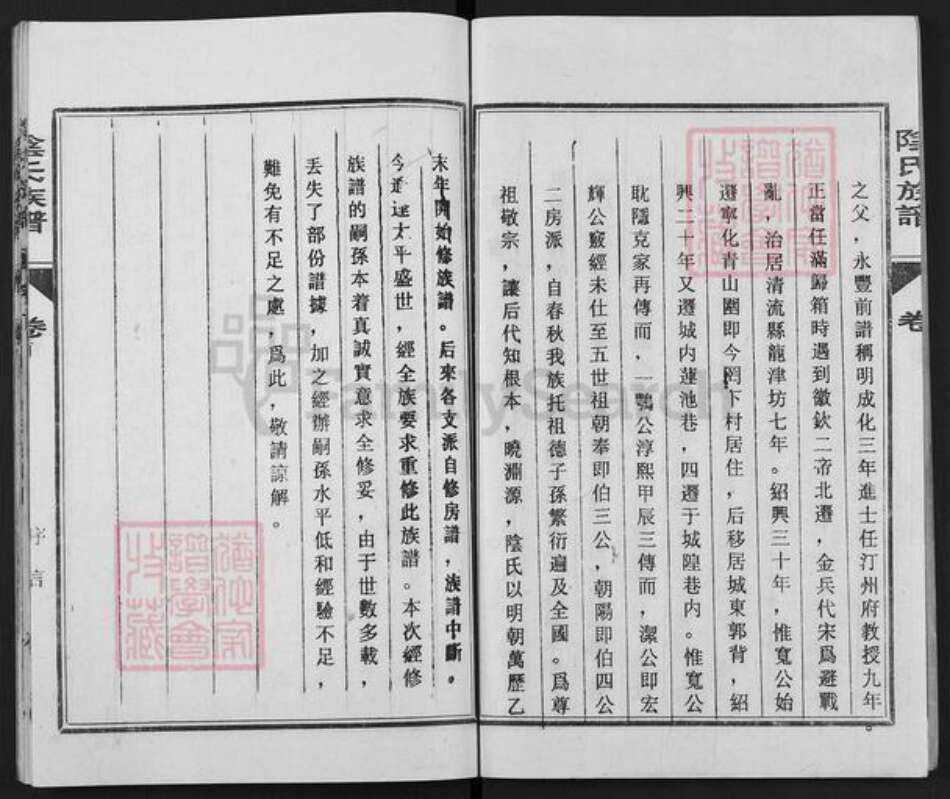 陰氏族譜
卷
之父，永豐前譜稱明成化三年進士任汀州府教授九年。
正當任滿歸箱時遇到徽欽二帝北遷，金兵代宋爲避戰
亂，治居清流縣龍津坊七年。紹興三十年，惟寬公始
遷寧化青山圍即今罔下村居住，后移居城東郭背，紹
興二十年又遷城内蓮池巷，四遷于城隍巷内。惟寬公
耽隱克家再傳而，一鶚公淳熙甲辰三傳而，潔公即宏
輝公竅經未仕至五世祖朝奉即伯三公，朝陽即伯四公
二房派，自春秋我族托祖德子孫繁衍遍及全國。爲尊
祖敬宗，讓后代知根本，曉淵源，陰氏以明朝萬歷乙
末年開始修族譜。后來各支派自修房譜，族譜中斷。
今逢達太平盛世，經全族要求重修此族譜。本次經修
族譜的嗣孫本着真誠實意求全修妥，由于世數多載，
丢失了部份譜據，加之經辦嗣孫水平低和經驗不足，
難免有不足之處，爲此，敬請諒解。
陰氏族譜
卷首
序言
FamilySearch